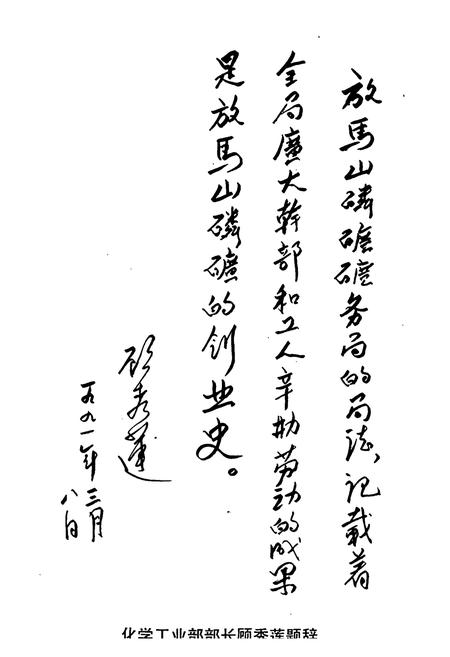 放馬山磷礦礦务局的局誌,记載着
全局廣大幹部和工人辛勤劳动的成果
是放馬山磷礦的创业史。
顾秀蓮
一九九一年三月
八日
化学工业部部长顾秀莲题辞